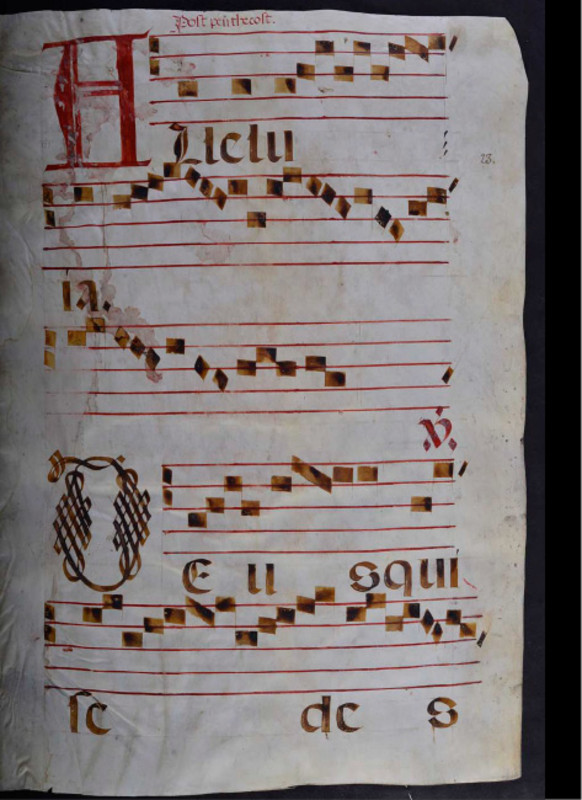 Post penthecost.
Allelu
23.
ia.
℣.
De u squi
se de s